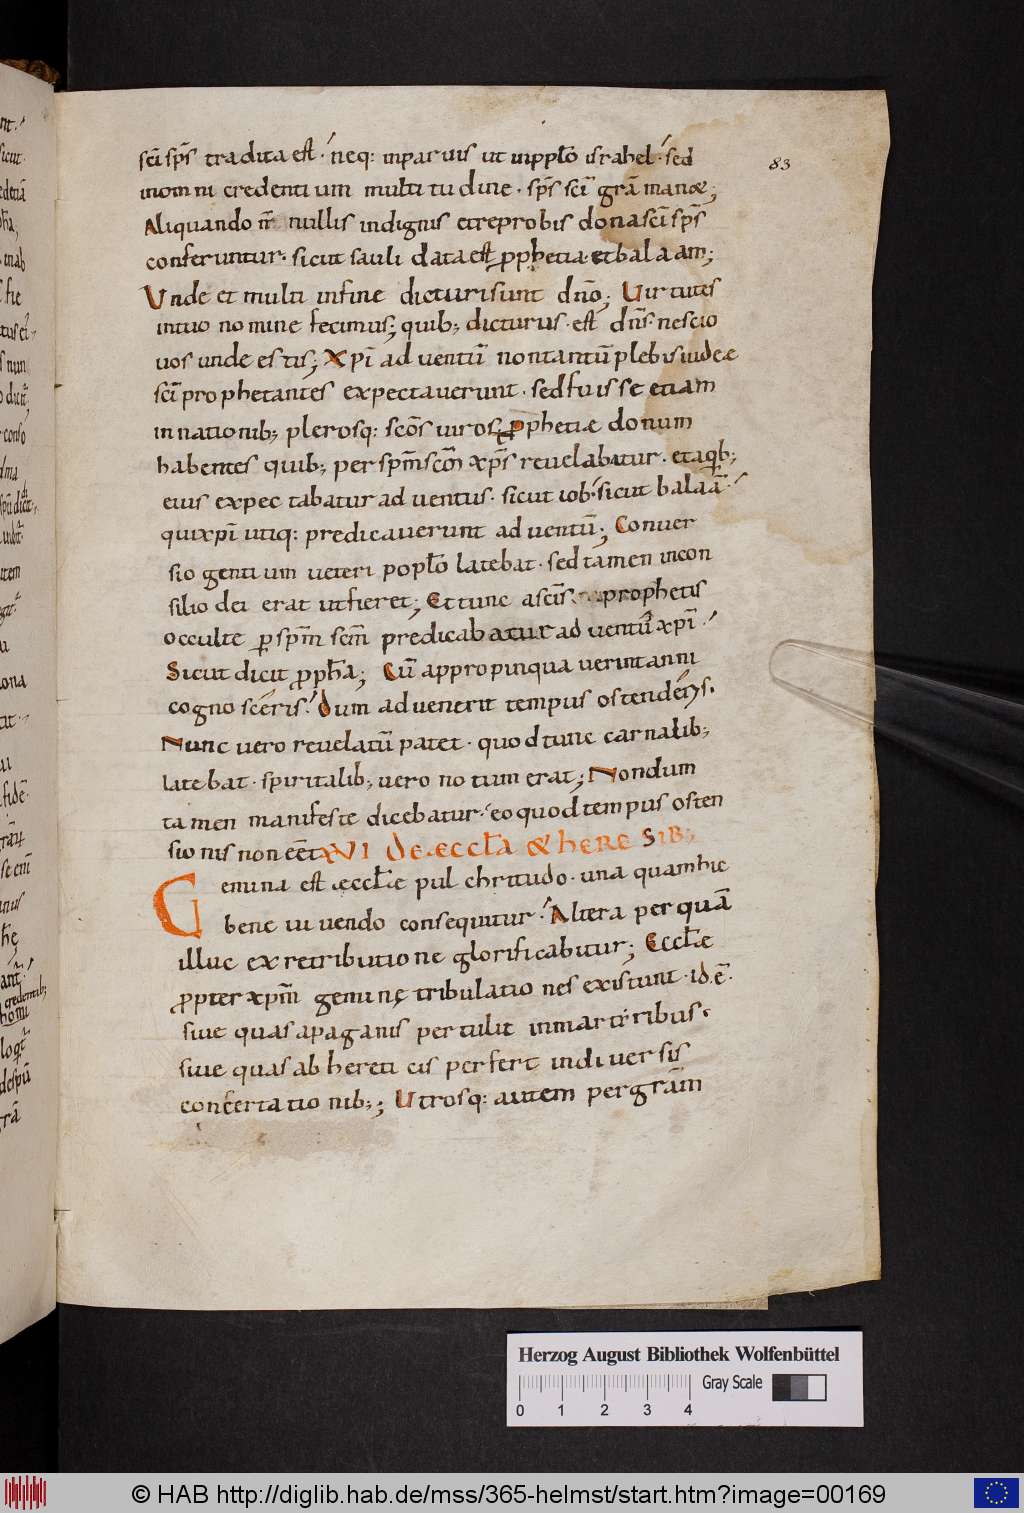 83
sc̄i sp̄s tradita est. neq: inparuis ut inpplo israhel. sed
inomni credentium multitudine. sp̄s sc̄i grā manæ;
Aliquando nullis indignis etreprobis donasc̄i sp̄s
conferuntur. sicut sauli data est pphetia. et balaam;
Vnde et multi infine dicturi sunt dn̄o; Uirtutes
intuo nomine fecimus; quib; dicturus. est dn̄s. nescio
uos unde estis; Xp̄i aduentū nontantū plebis iudeæ
sc̄i prophetantes expectauerunt. sed fuisse etiam
in nationib; plerosq: sc̄os uiros; pphetiæ donum
habentes quib; per sp̄m sc̄m xp̄s reuelabatur. et aqib;
eius expectabatur aduentus. sicut iob. sicut balaā.
qui xp̄i utiq: predicauerunt aduentū; Conuer
sio gentium ueteri poplo latebat. sed tamen incon
silio dei erat ut fieret; Et tunc a sc̄is prophetis
occulte p sp̄m sc̄m predicabatur aduentū xp̄i.
Sicut dicit ppha; Cū appropinquauerint anni
cognosceris. dum aduenerit tempus ostenderis.
Nunc uero reuelatū patet. quod tunc carnalib;
latebat. spiritalib; uero notum erat; Nondum
tamen manifeste dicebatur. eo quod tempus osten
sionis non eēt XVI de eccla & heresib;
Gemina est æcclæ pulchritudo. una quam hic
bene uiuendo consequitur. Altera per quā
illuc ex retributione glorificabitur; Ecclæ
ppter xp̄m geminę tribulationes existunt. id. ē.
siue quas a paganis pertulit in martiribus.
siue quas ab hereticis perfert in diuersis
concertationib;; Utrosq: autem per grām
Herzog August Bibliothek Wolfenbüttel
Gray Scale
0 1 2 3 4
© HAB http://diglib.hab.de/mss/365-helmst/start.htm?image=00169